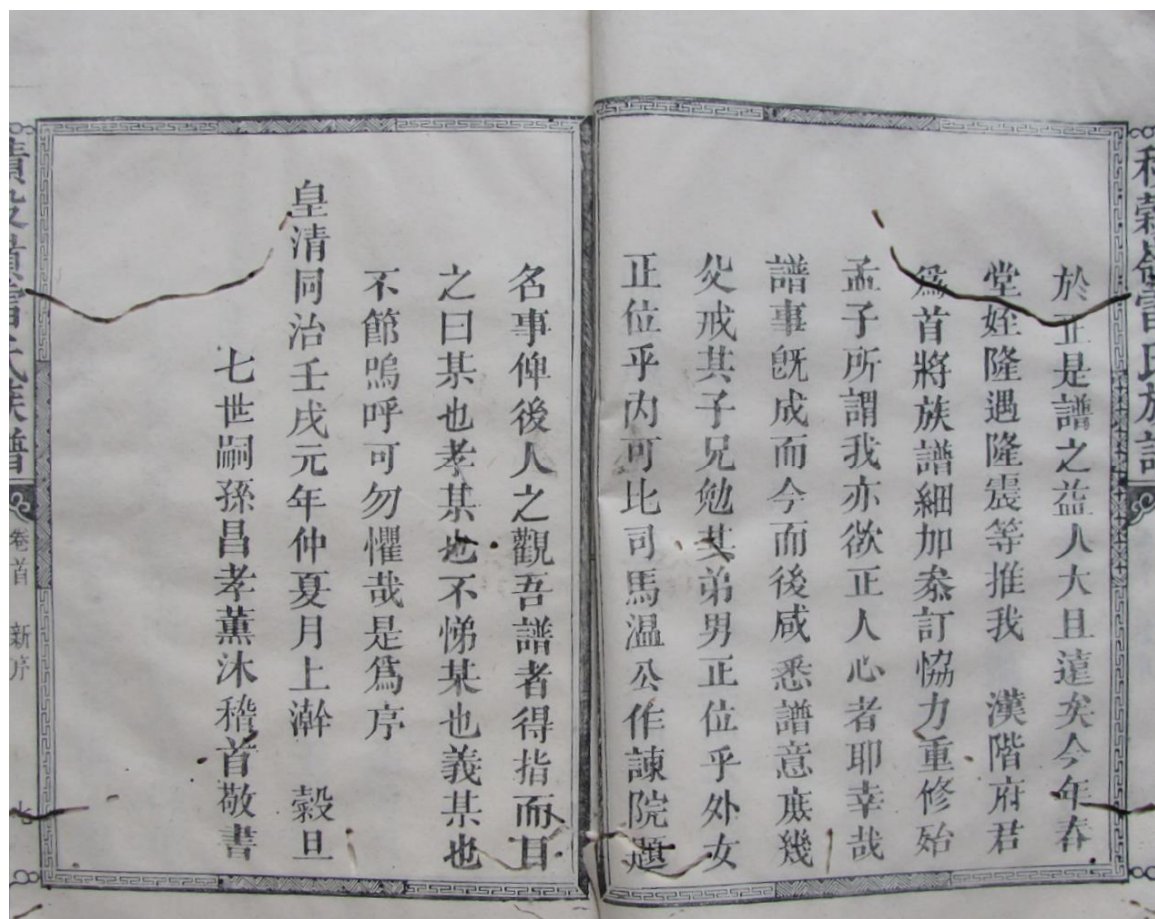 於正是譜之益人大且遠矣今年春
堂姪隆遇隆震等推我　漢階府君
爲首將族譜細加叅訂恊力重修始
孟子所謂我亦欲正人心者耶幸哉
譜事旣成而今而後咸悉譜意庶幾
父戒其子兄勉其弟男正位乎外女
正位乎內可比司馬温公作諫院題
名事俾後人之觀吾譜者得指而目
之曰某也孝某也不悌某也義某也
不節嗚呼可勿懼哉是爲序
皇清同治壬戌元年仲夏月上澣　穀旦
七世嗣孫昌孝薰沐稽首敬書
積穀嶺雷氏族譜
卷首　新序　七